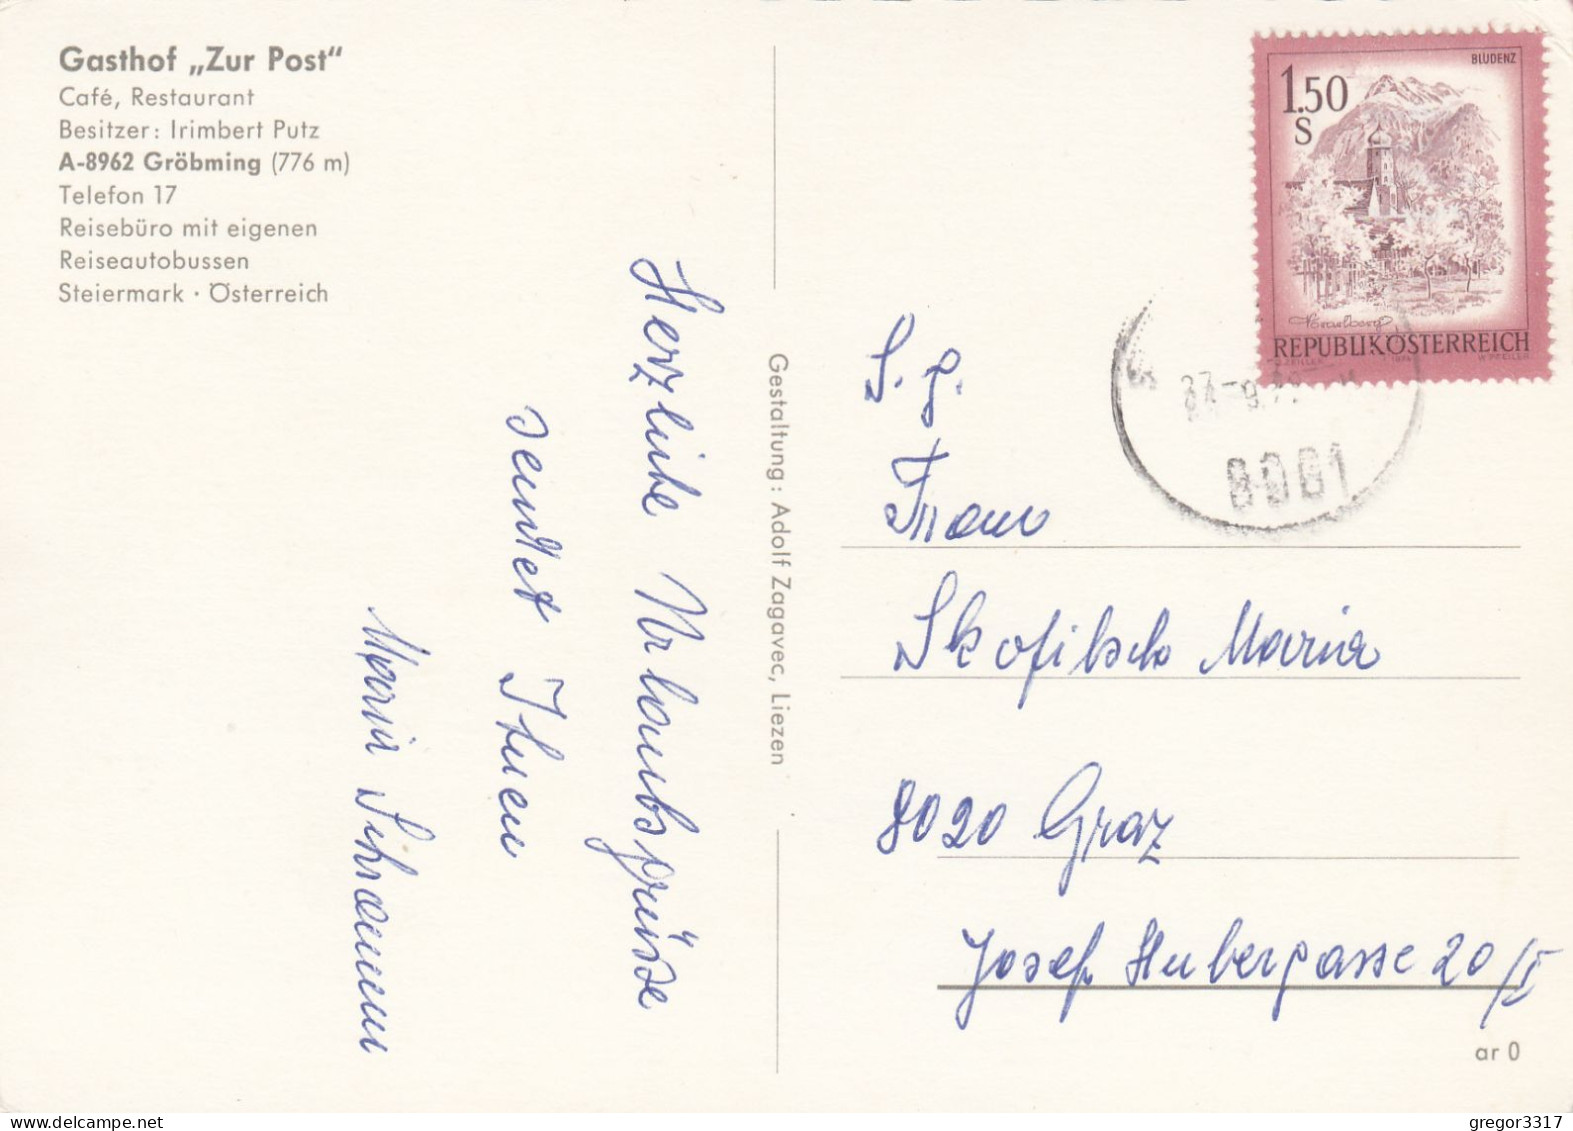 Gasthof „Zur Post“
Café, Restaurant
Besitzer: Irimbert Putz
A-8962 Gröbming (776 m)
Telefon 17
Reisebüro mit eigenen
Reiseautobussen
Steiermark · Österreich
Herzliche Urlaubsgrüsse
sendet Ihnen
Maria
Gestaltung: Adolf Zagavec, Liezen
BLUDENZ
1.50
S
Vorarlberg
REPUBLIK ÖSTERREICH
8001
S. g.
Frau
Skofitsch Maria
8020 Graz
Josef Hubergasse 20/I
ar 0
gregor3317